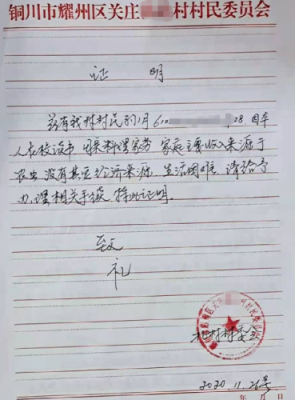 铜川市耀州区关庄 村村民委员会
证 明
兹有我村村民 610 28 因本
人在校读书 母亲料理家务 家庭主要收入来源于
农业 没有其它经济来源 生活困难 请给予
办理相关手续 特此证明。
致
礼
村村委会
2020.11.26号
年 月 日